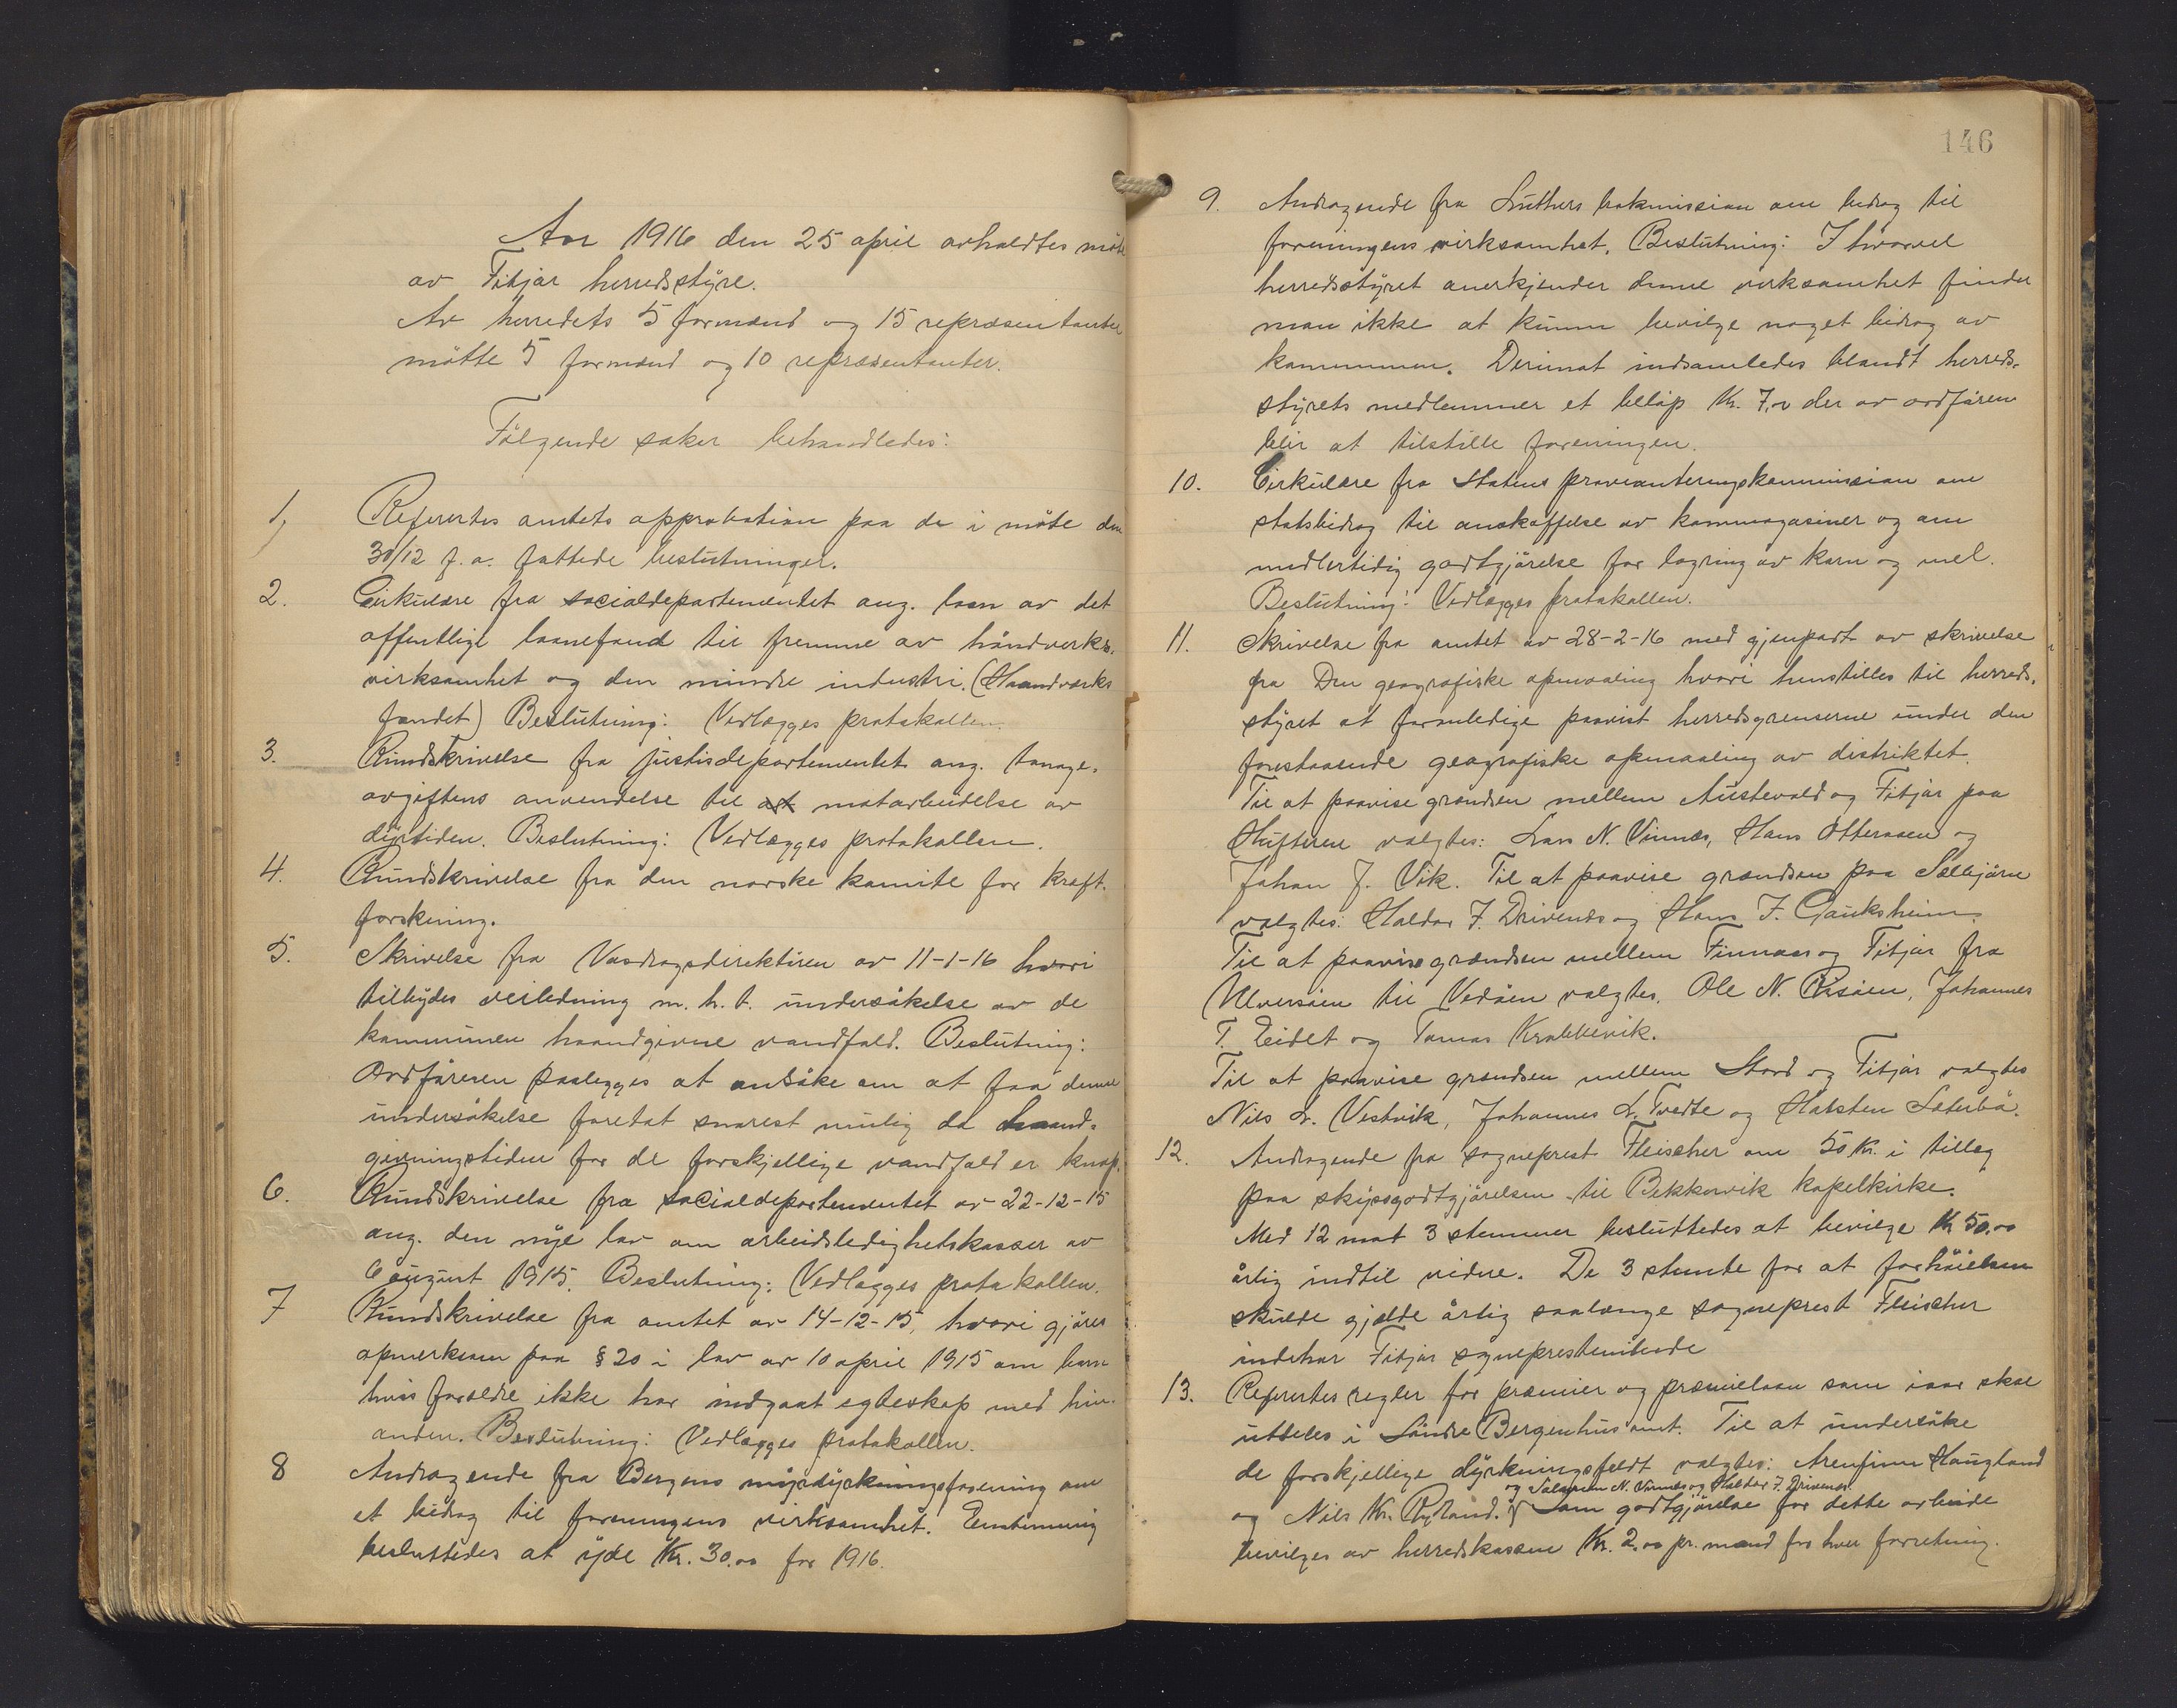 Aar 1916 den 25 april avholdtes møte
av Fitjar herredsstyre.
Av herredets 5 formænd og 15 repræsentanter
møtte 5 formænd og 10 repræsentanter.
Følgende saker behandledes:
1, Refertes amtets approbation paa de i møte den
30/12 f.a. fattede beslutninger.
2. Cirkulære fra socialdepartementet ang. laan av det
offentlige laanefond til fremme av håndverks-
virksamhet og den mindre industri. (Haandværks
fondet) Beslutning: Vedlægges protokollen.
3. Rundskrivelse fra justisdepartementet ang. tonage-
avgiftens anvendelse til at motarbeidelse av
dyrtiden. Beslutning: Vedlægges protokollen.
4. Rundskrivelse fra den norske komite for kræft-
forskning.
5. Skrivelse fra Vasdragsdirektøren av 11-1-16 hvori
tilbydes veiledning m. h. t. undersøkelse av de
kommunen haandgivne vandfald. Beslutning:
Ordføreren paalegges at ansøke om at faa denne
undersøkelse foretat snarest mulig da haand-
givningstiden for de forskjellige vandfald er knap.
6. Rundskrivelse fra socialdepartementet av 22-12-15
ang. den nye lov om arbeidsledighetskasser av
6 august 1915. Beslutning: Vedlægges protokollen.
7 Rundskrivelse fra amtet av 14-12-15, hvori gjøres
opmerksom paa § 20 i lov av 10 april 1915 om barn
hvis forældre ikke har indgaat egteskap med hin-
anden. Beslutning: Vedlægges protokollen.
8 Andragende fra Bergens myrdyrkningsforening om
et bidrag til foreningens virksomhet. Enstemmig
besluttedes at yde Kr. 30.00 for 1916.
146
9. Andragende fra Luthers bokmission om bidrag til
foreningens virksamhet. Beslutning: I hvorvel
herredsstyret anerkjender denne virksamhet finder
man ikke at kunne bevilge noget bidrag av
kommunen. Derimot indsamledes blandt herreds-
styrets medlemmer et beløp Kr. 7,00 der av ordføren
blir at tilstille foreningen.
10. Cirkulære fra Statens provianteringskommission om
statsbidrag til anskaffelse av kornmagasiner og om
midlertidig godtgjørelse for lagring av korn og mel.
Beslutning: Vedlægges protokollen.
11. Skrivelse fra amtet av 28-2-16 med gjenpart av skrivelse
fra Den geografiske opmaaling hvori henstilles til herreds-
styret at foranledige paavist herredsgrenserne under den
forestaaende geografiske opmaaling av distriktet.
Til at paavise grændsen mellem Austevold og Fitjar paa
Huftren valgtes: Lars N. Vinnes, Hans Ottersen og
Johan J. Vik. Til at paavise grændsen paa Selbjørn
valgtes: Haldor J. Drivenes og Hans J. Gauksheim.
Til at paavise grændsen mellem Finnaas og Fitjar fra
Ulversøen til Vedøen valgtes. Ole N. Risøen, Johannes
T. Eidet og Tomas Krabbevik.
Til at paavise grændsen mellem Stord og Fitjar valgtes
Nils L. Vestvik, Johannes L. Tvedte og Halsten Sæterbø.
12. Andragende fra sogneprest Fleischer om 50 Kr. i tillæg
paa skydsgodtgjørelsen til Bekkarvik kapelkirke.
Med 12 mot 3 stemmer besluttedes at bevilge Kr 50.00
årlig indtil videre. De 3 stemte for at forhøielsen
skulde gjælde årlig saalænge sogneprest Fleischer
indehar Fitjar sogneprestembede
13. Refertes regler for præmier og præmielaan som iaar skal
utdeles i Søndre Bergenhus amt. Til at undersøke
de forskjellige dyrkningsfeldt valgtes: Arenfinn Haugland
og Salamon N. Vinnes og Haldor J. Drivenes.
og Nils Kr. Ryland. Som godtgjørelse for dette arbeide
bevilges av herredskassen Kr. 2.00 pr. mand for hver forretning.